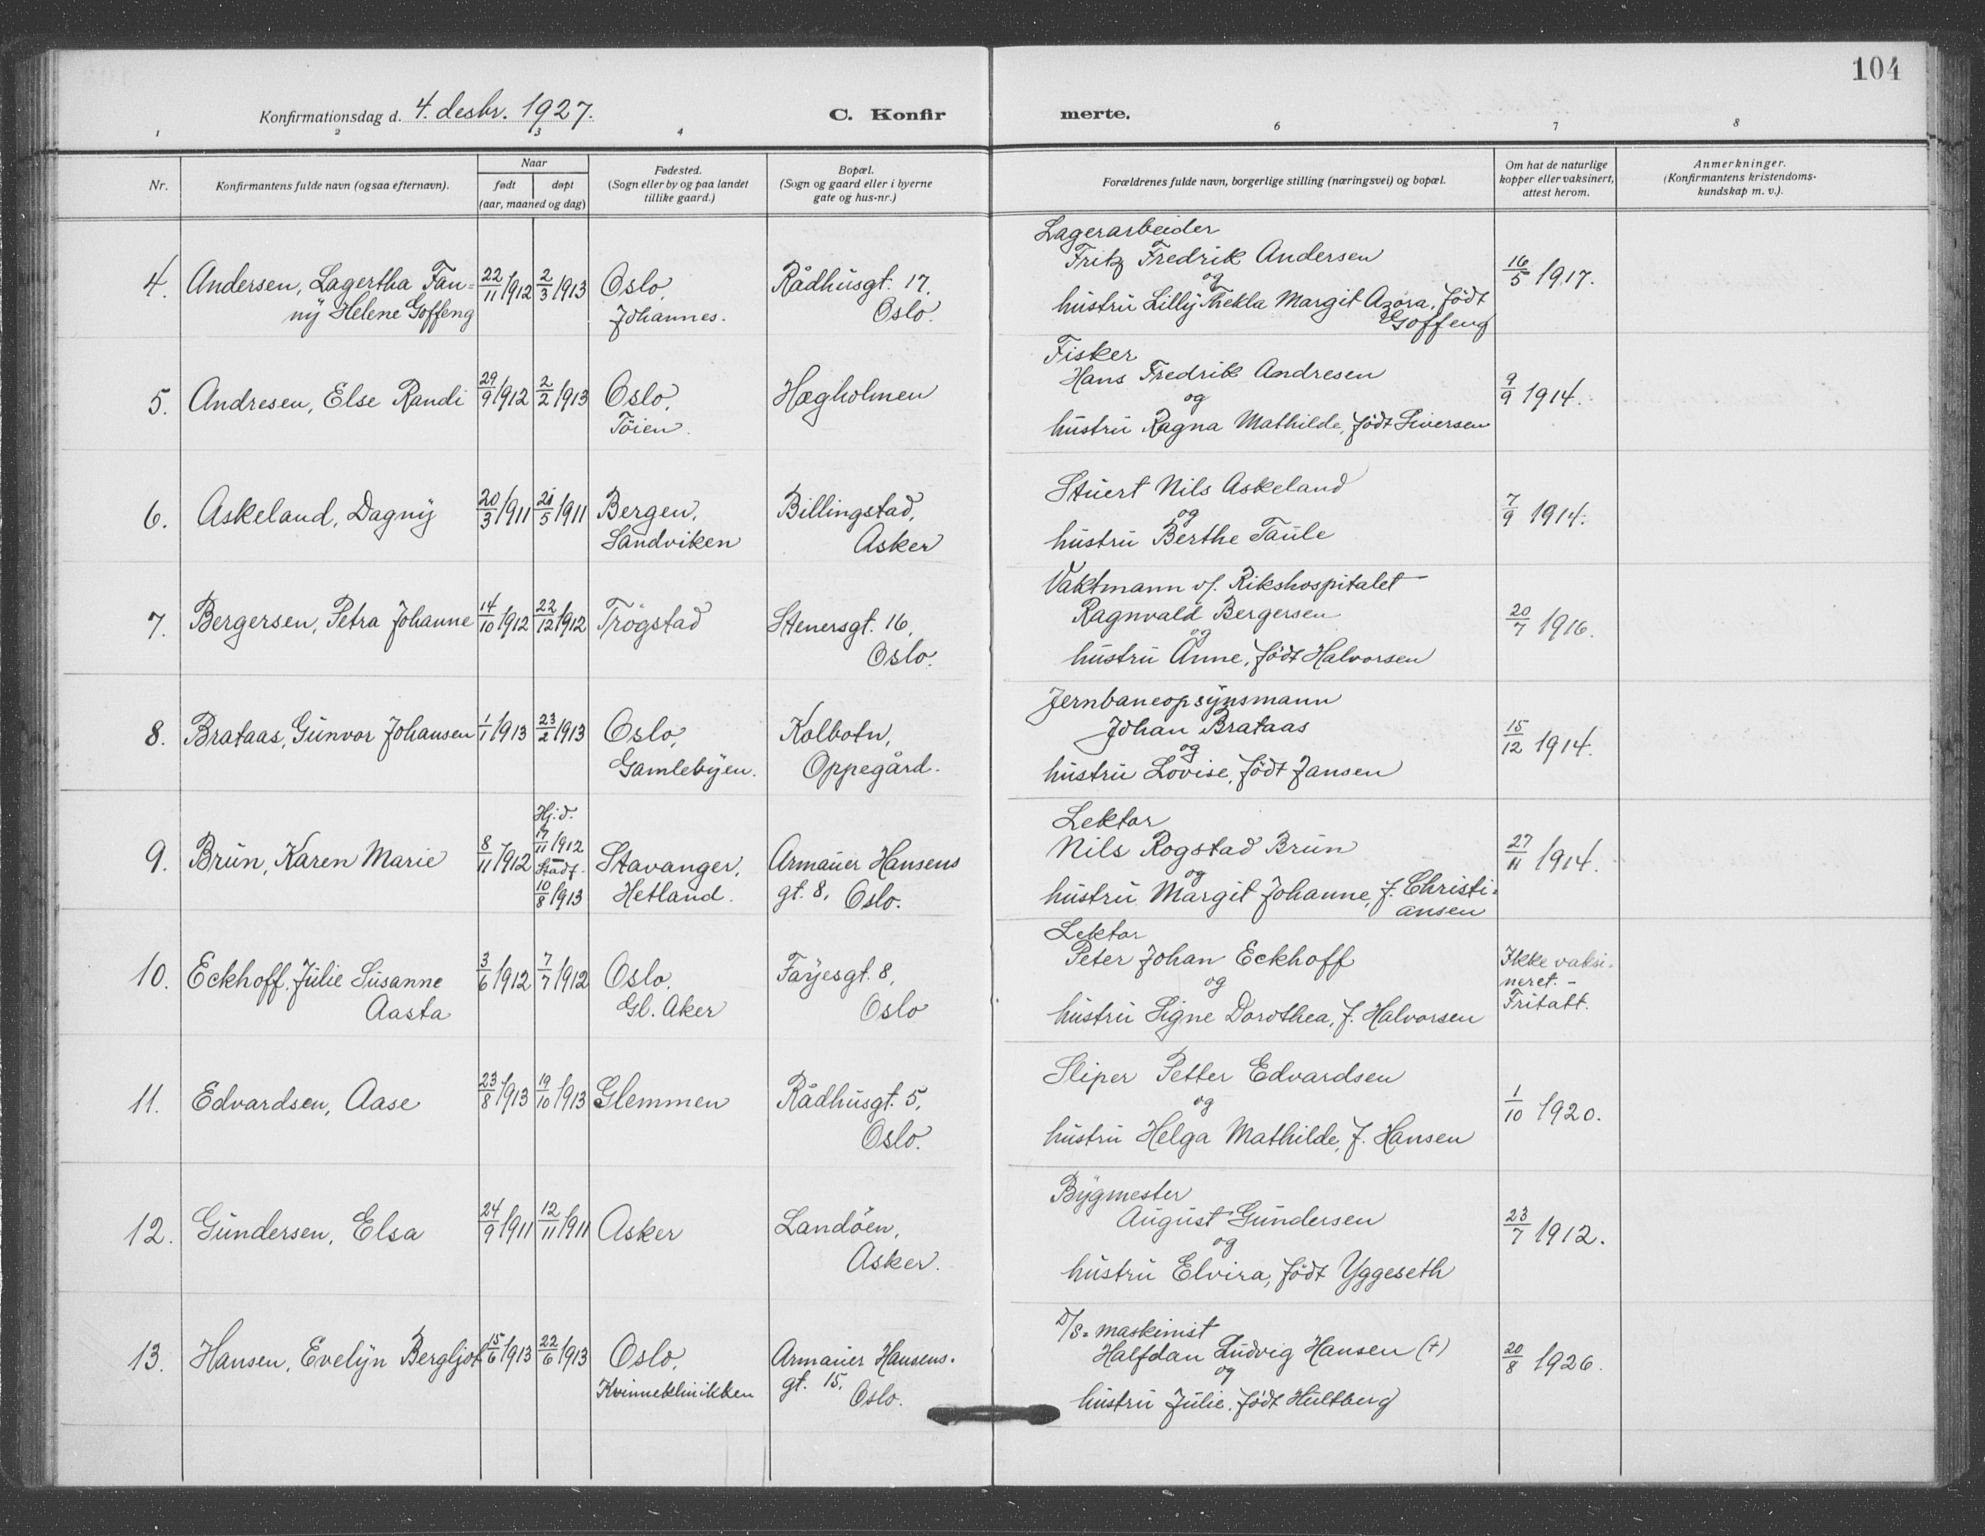 104
Konfirmationsdag d. 4. desbr. 1927.
C. Konfirmerte.
1 2 3 4 6 7 8
Nr.
Konfirmantens fulde navn (ogsaa efternavn).
Naar
født
døpt
(aar, maaned og dag)
Fødested.
(Sogn eller by og paa landet
tillike gaard.)
Bopæl.
(Sogn og gaard eller i byerne
gate og hus-nr.)
Forældrenes fulde navn, borgerlige stilling (næringsvei) og bopæl.
Om hat de naturlige
kopper eller vaksinert,
attest herom.
Anmerkninger.
(Konfirmantens kristendoms-
kundskap m. v.).
4. Andersen, Lagertha Fan=
ny Helene Goffeng
22/11 1912
2/3 1913
Oslo,
Johannes.
Rådhusgt. 17,
Oslo.
Lagerarbeider
Fritz Fredrik Andersen
og
hustru Lilly Thekla Margit Azora, født
Goffeng
16/5 1917.
5. Andresen, Else Randi
29/9 1912
2/2 1913
Oslo,
Töien.
Hægholmen
Fisker
Hans Fredrik Andresen
og
hustru Ragna Mathilde, født Siversen
9/9 1914.
6. Askeland, Dagny
20/3 1911
21/5 1911
Bergen,
Sandviken
Billingstad,
Asker
Stuert Nils Askeland
og
hustru Berthe Taule
7/9 1914.
7. Bergersen, Petra Johanne
14/10 1912
22/12 1912
Trögstad
Stenersgt. 16,
Oslo.
Vaktmann v/. Rikshospitalet
Ragnvald Bergersen
og
hustru Anne, født Halvorsen
20/7 1916.
8. Brataas, Gunvor Johansen
1/1 1913
23/2 1913
Oslo,
Gamlebyen.
Kolbotn,
Oppegård.
Jernbaneopsynsmann
Johan Brataas
og
hustru Lovise, født Jansen
15/12 1914.
9. Brun, Karen Marie
8/11 1912
Hj.d.
17/11 1912
Stadf.
10/8 1913
Stavanger,
Hetland.
Armauer Hansens
gt. 8, Oslo.
Lektor
Nils Rogstad Brun
og
hustru Margit Johanne, f. Christi=
ansen
27/11 1914.
10. Eckhoff, Julie Susanne
Aasta
3/6 1912
7/7 1912
Oslo,
Gl. Aker
Fayesgt. 8,
Oslo
Lektor
Peter Johan Eckhoff
og
hustru Signe Dorothea, f. Halvorsen
Ikke vaksi-
neret. -
Fritatt.
11. Edvardsen, Aase
23/8 1913
19/10 1913
Glemmen
Rådhusgt. 5,
Oslo.
Sliper Petter Edvardsen
og
hustru Helga Mathilde, f. Hansen
1/10 1920.
12. Gundersen, Elsa
24/9 1911
12/11 1911
Asker
Landöen,
Asker.
Bygmester
August Gundersen
og
hustru Elvira, født Yggeseth
23/7 1912.
13. Hansen, Evelyn Bergljot
15/6 1913
22/6 1913
Oslo,
Kvinneklinikken
Armauer Hansens.
gt. 15,
Oslo.
D/S= maskinist
Halfdan Ludvig Hansen (+)
og
hustru Julie, født Hultberg
20/8 1926.